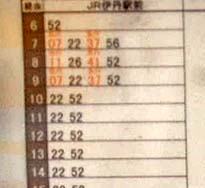 JR伊丹駅前
6 52
7 07 22 37 56
8 11 26 41 52
9 07 22 37 52
10 22 52
11 22 52
12 22 52
13 22 52
14 22 52